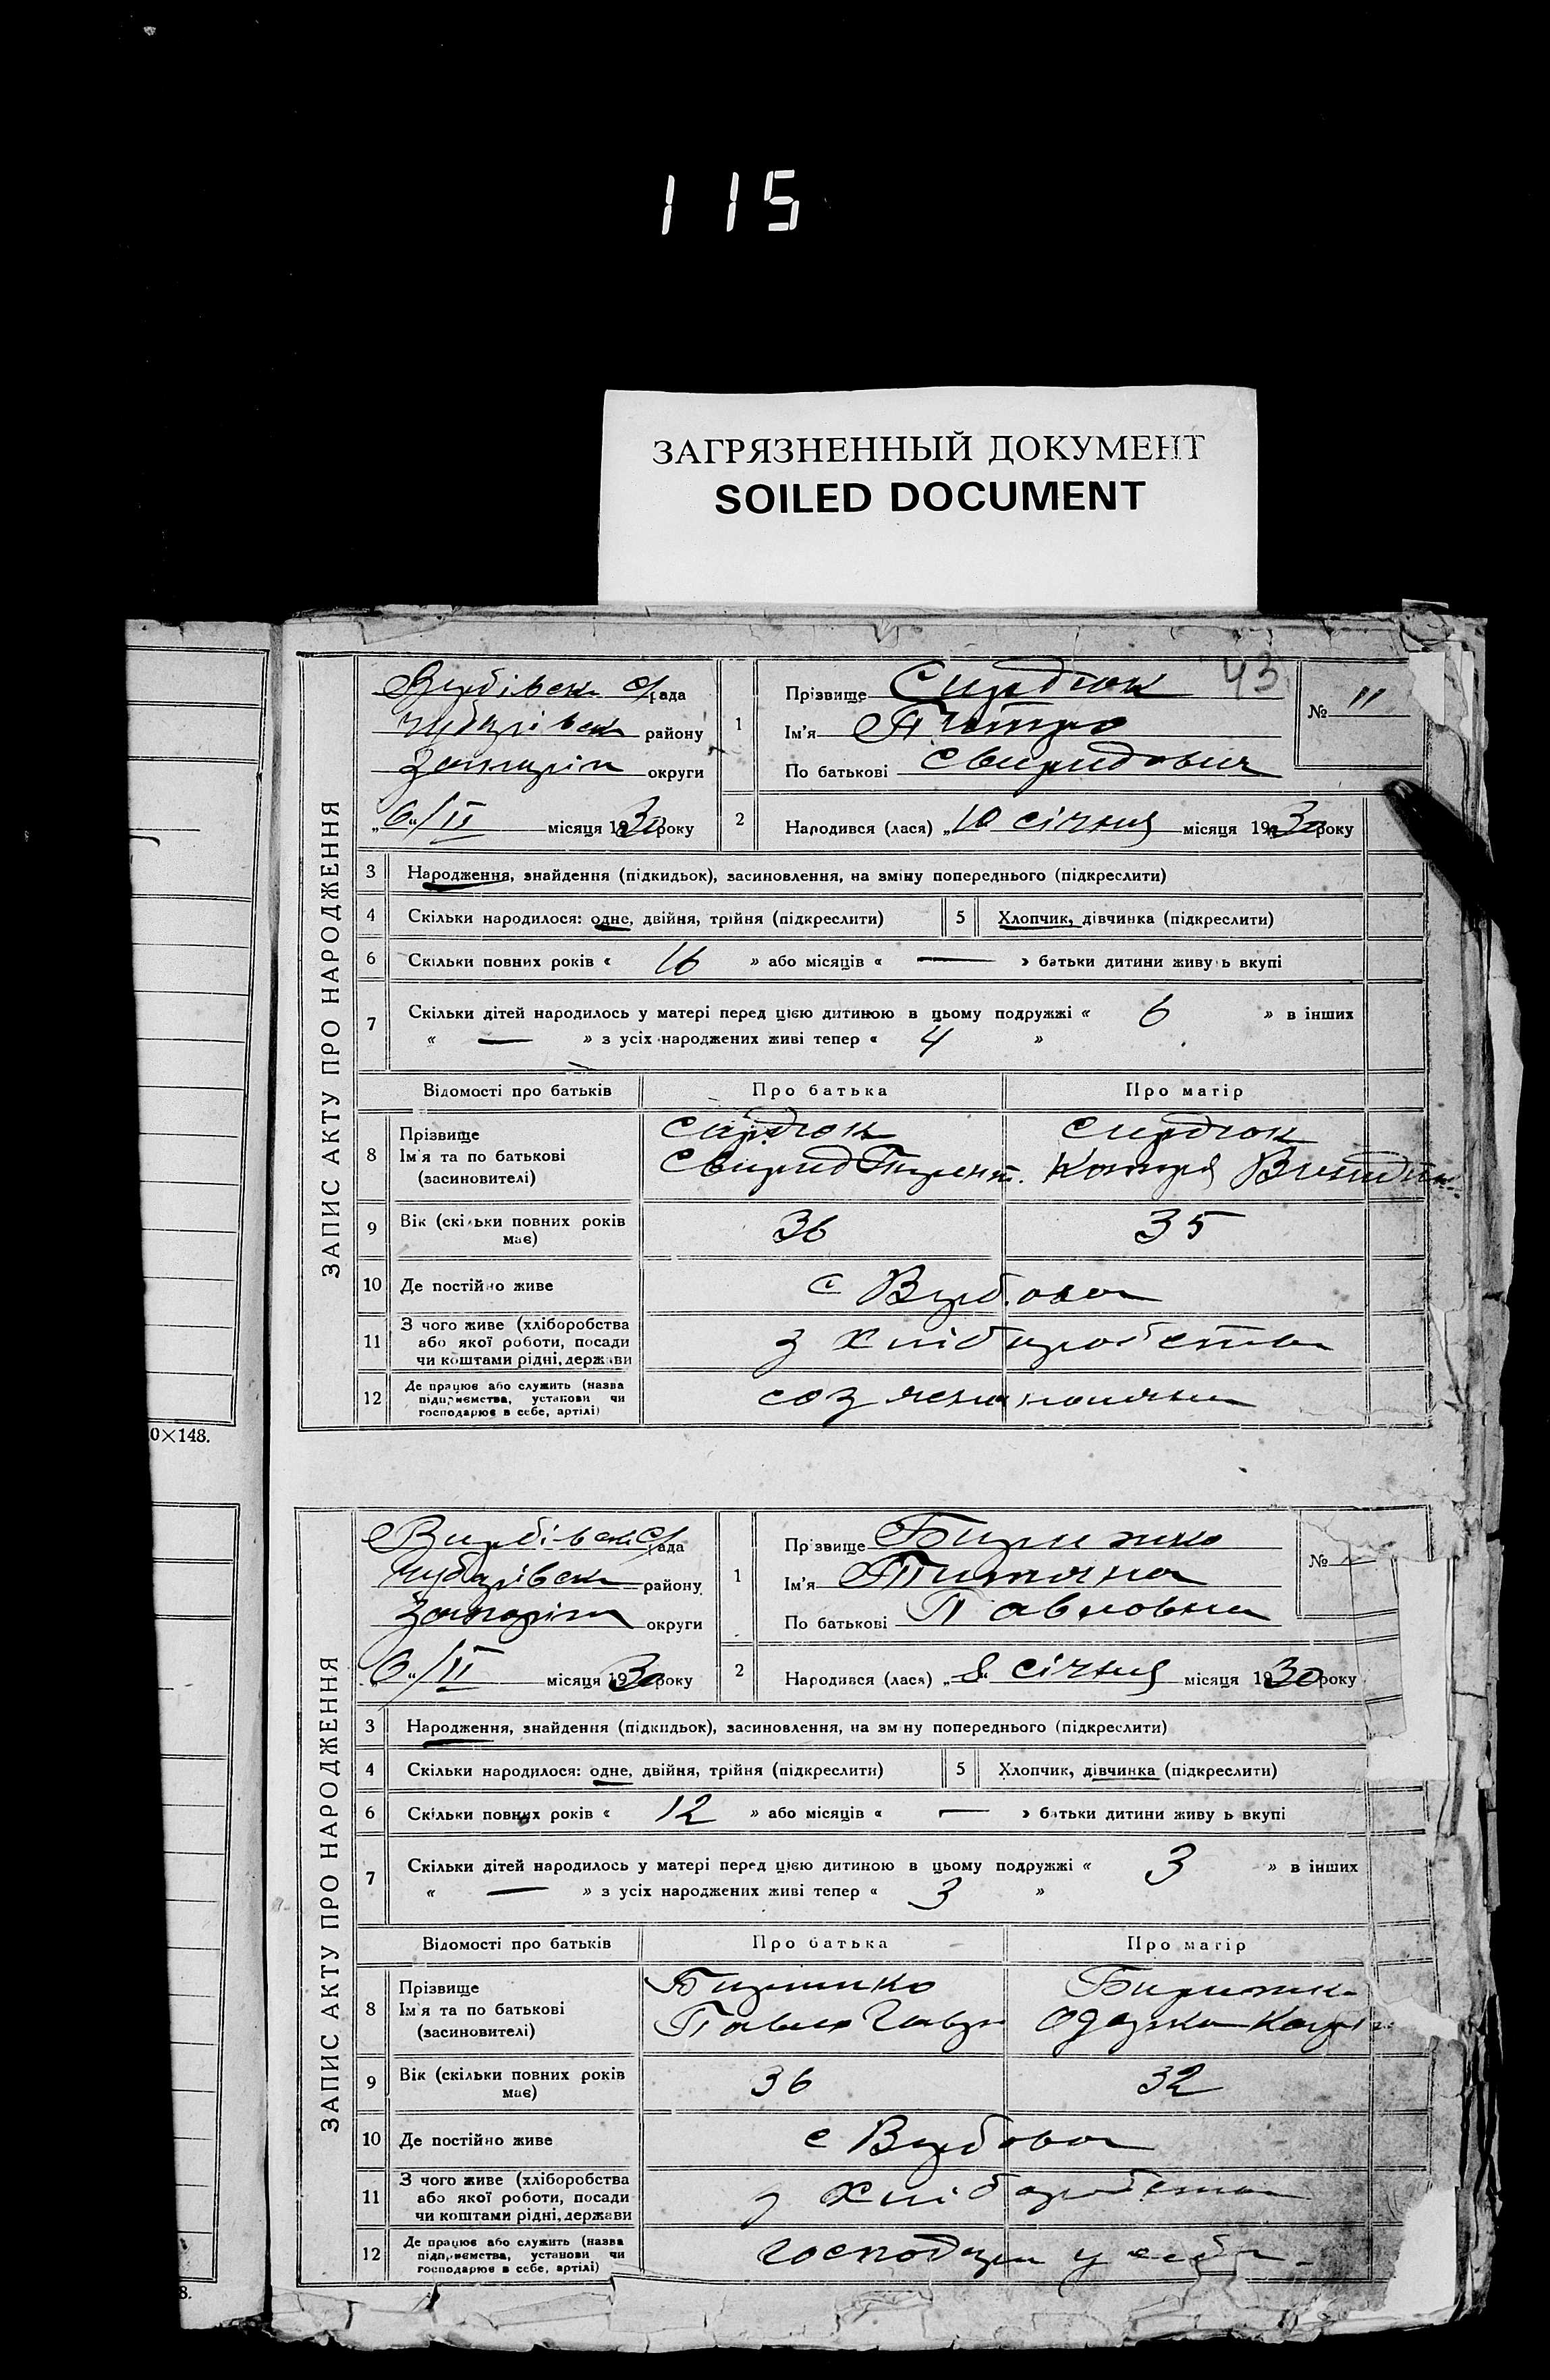 115
ЗАГРЯЗНЕННЫЙ ДОКУМЕНТ
SOILED DOCUMENT
0×148.
8.
43
ЗАПИС АКТУ ПРО НАРОДЖЕННЯ
Вербівськ с/рада
Чубарівськ району
Запоріж округи
„6“/II місяця 1930 року
1 Прізвище Сердюк
Ім'я Петро
По батькові Свиридович
№ 11
2 Народився (лася) „10 січня місяця 1930 року
3 Народження, знайдення (підкидьок), засиновлення, на зміну попереднього (підкреслити)
4 Скільки народилося: одне, двійня, трійня (підкреслити) 5 Хлопчик, дівчинка (підкреслити)
6 Скільки повних років « 16 » або місяців « — » батьки дитини живуть вкупі
7 Скільки дітей народилось у матері перед цією дитиною в цьому подружжі « 6 » в інших
« — » з усіх народжених живі тепер « 4 »
Відомості про батьків Про батька Про матір
8 Прізвище Сердюк Сердюк
Ім'я та по батькові Свирид
(засиновителі)
9 Вік (скільки повних років 36 35
має)
10 Де постійно живе с Вербова
11 З чого живе (хліборобства
або якої роботи, посади з хліборобства
чи коштами рідні, держави
12 Де працює або служить (назва
підприємства, установи чи соз
господарює в себе, артілі)
ЗАПИС АКТУ ПРО НАРОДЖЕННЯ
Вербівськ с/рада
Чубарівськ району
Запоріж округи
6“/II місяця 1930 року
1 Прізвище
Ім'я Титяна
По батькові Павловна
№
2 Народився (лася) „8“ січня місяця 1930 року
3 Народження, знайдення (підкидьок), засиновлення, на зміну попереднього (підкреслити)
4 Скільки народилося: одне, двійня, трійня (підкреслити) 5 Хлопчик, дівчинка (підкреслити)
6 Скільки повних років « 12 » або місяців « — » батьки дитини живуть вкупі
7 Скільки дітей народилось у матері перед цією дитиною в цьому подружжі « 3 » в інших
« — » з усіх народжених живі тепер « 3 »
Відомості про батьків Про батька Про матір
8 Прізвище
Ім'я та по батькові Павло Гавр Одарка
(засиновителі)
9 Вік (скільки повних років 36 32
має)
10 Де постійно живе с Вербова
11 З чого живе (хліборобства
або якої роботи, посади з хліборобства
чи коштами рідні, держави
12 Де працює або служить (назва
підприємства, установи чи господарює у себе
господарює в себе, артілі)